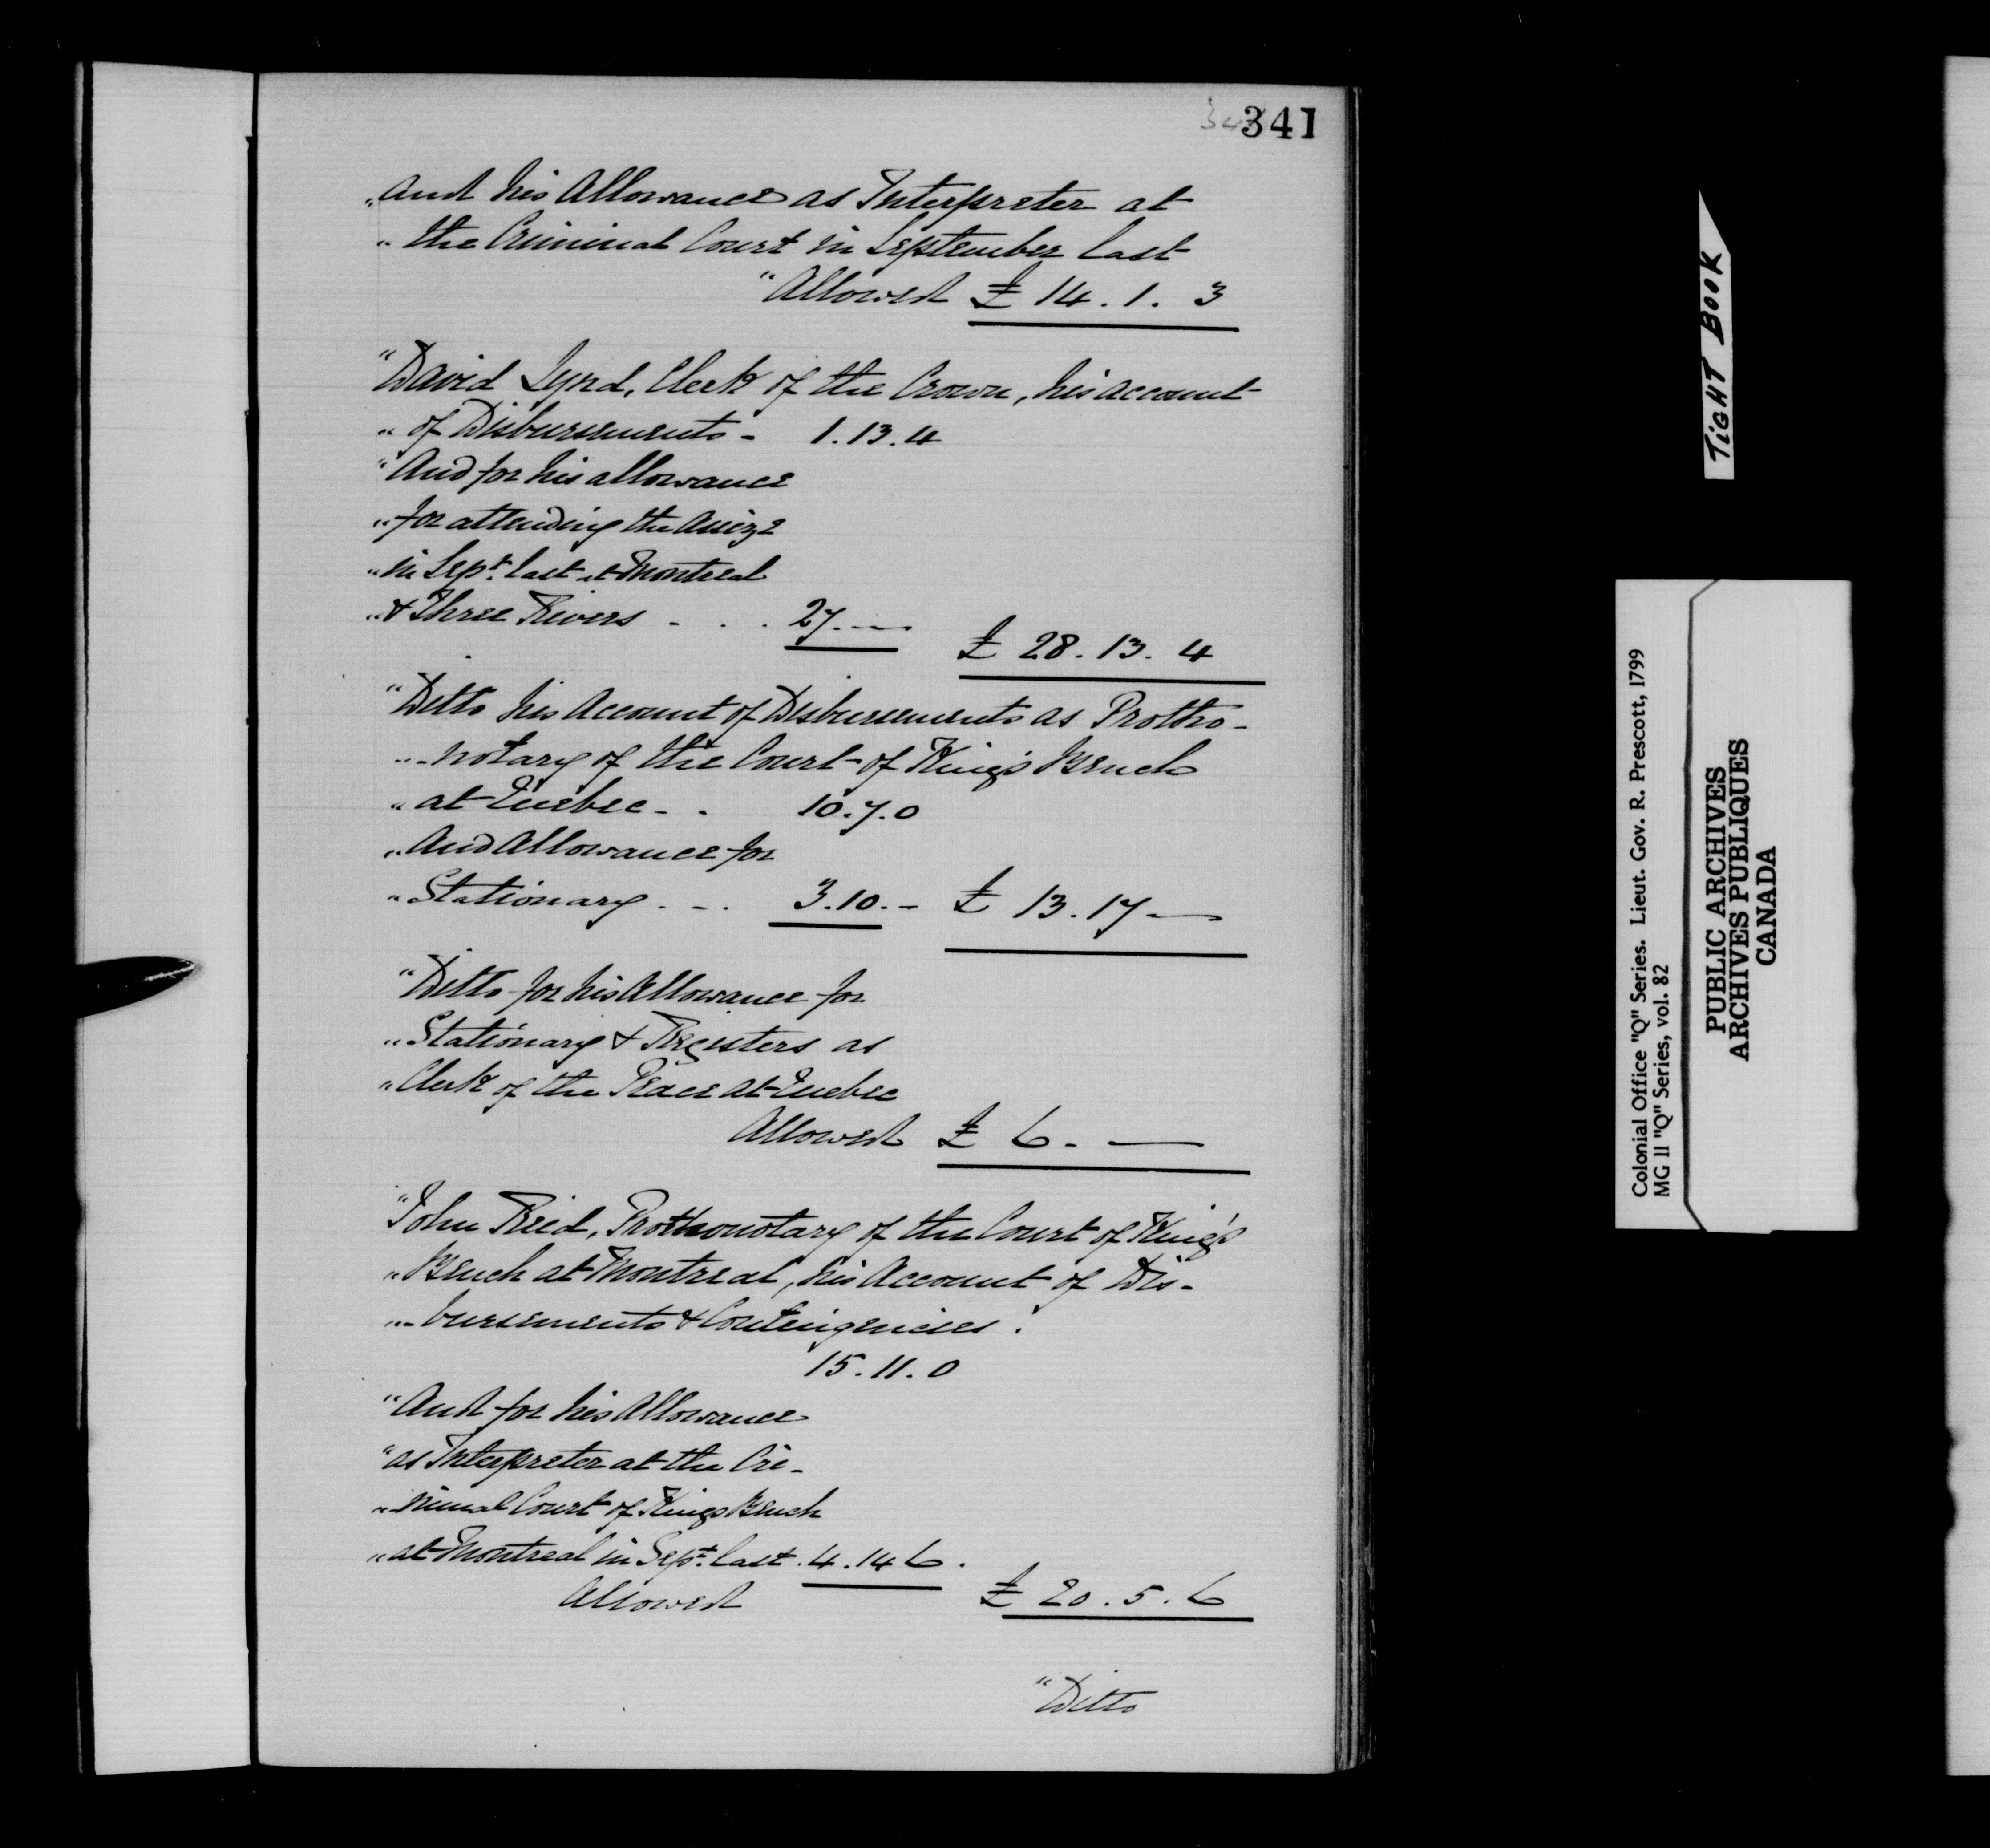 341
"And his Allowance as Interpreter at
" the Criminal Court in September last
"Allowed £ 14 . 1 . 3
"David Lynd, Clerk of the Crown, his account
" of Disbursements - 1 . 13 . 4
"And for his allowance
" for attending the Assize
" in Sept. last at Montreal
" & Three Rivers - . . 27 . —
£ 28 . 13 . 4
"Ditto his Account of Disbursements as Protho-
" -notary of the Court of King's Bench
" at Quebec - . 10 . 7 . 0
" And Allowance for
" Stationary . - . 3 . 10 . - £ 13 . 17 —
"Ditto for his Allowance for
" Stationary & Registers as
" Clerk of the Peace at Quebec
Allowed £ 6 - —
"John Reid, Prothonotary of the Court of King's
" Bench at Montreal, his Account of Dis-
" -bursements & Contingencies .
15 . 11 . 0
"And for his Allowance
"as Interpreter at the Cri-
" minal Court of Kings Bench
" at Montreal in Sept. last . 4 . 14 6 .
Allowed £ 20 . 5 . 6
"Ditto
TIGHT BOOK
Colonial Office "Q" Series. Lieut. Gov. R. Prescott, 1799
MG 11 "Q" Series, vol. 82
PUBLIC ARCHIVES
ARCHIVES PUBLIQUES
CANADA